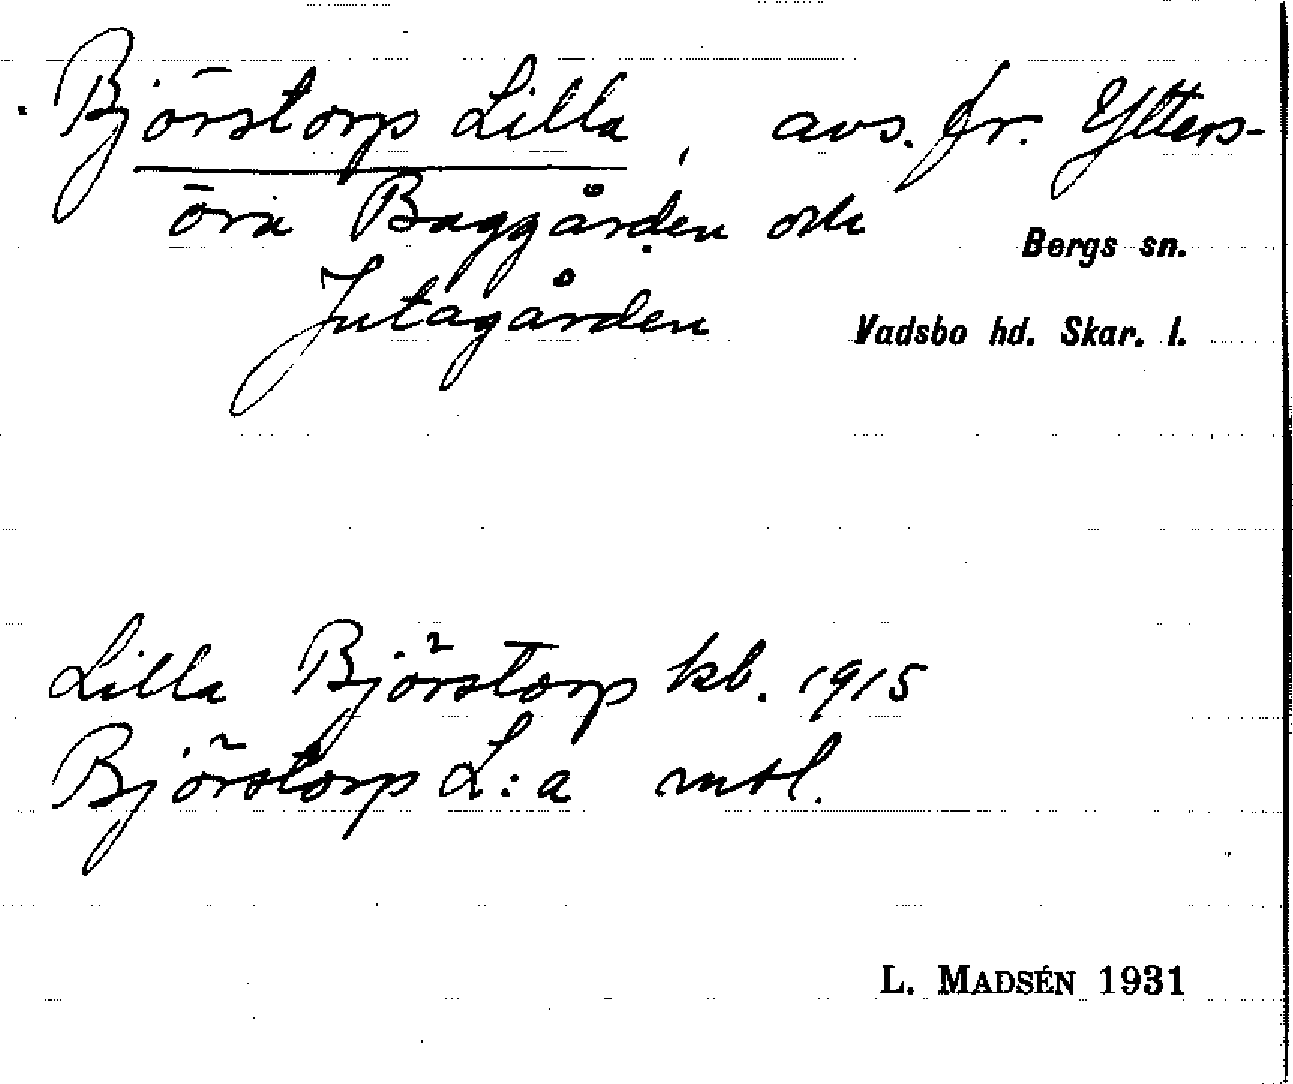 Björstorp Lilla, avs. fr. Ytters-
öra Baggården och
Bergs sn.
Jutagården
Vadsbo hd. Skar. l.
Lilla Björstorp kb. 1915
Björstorp L:a mtl.
L. MADSÉN 1931